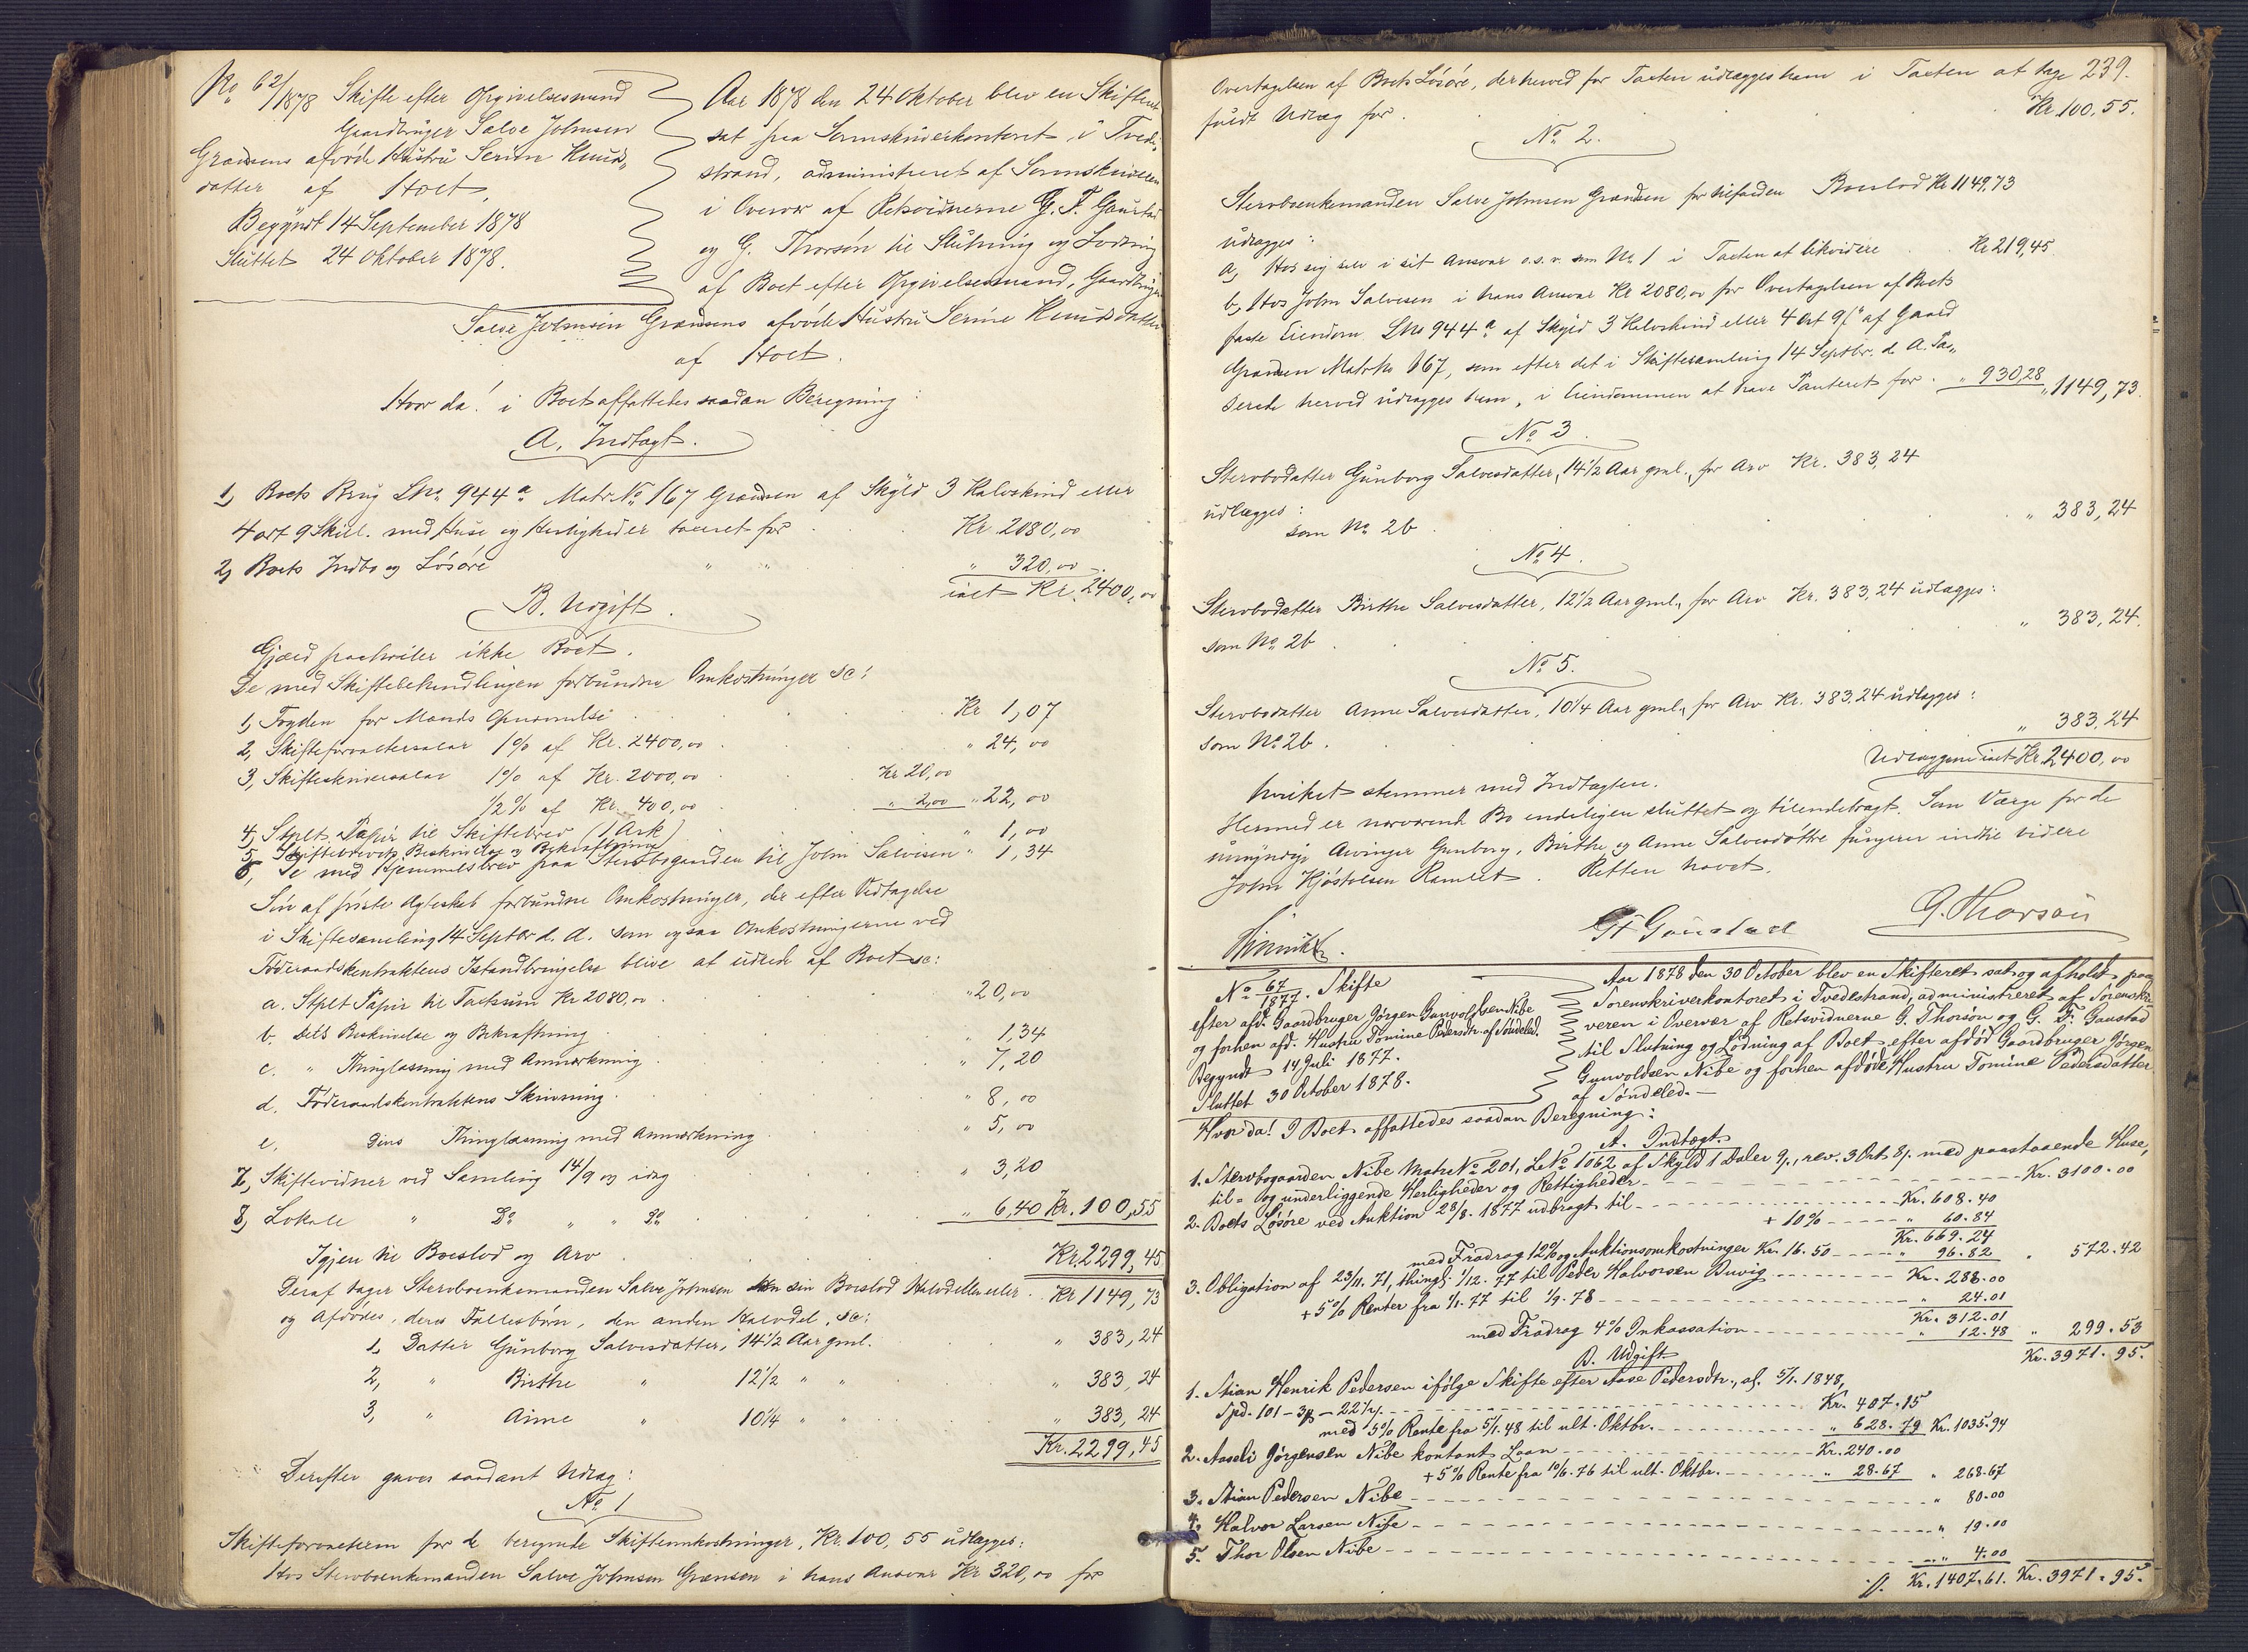 No 62/1878 Skifte efter Opgivelsesmand
Gaardbruger Salve Johnsen
Grændsens afdøde Hustru Serine Knuds„
datter af Holt,
Begyndt 14 September 1878
Sluttet 24 Oktober 1878.
Aar 1878 den 24 Oktober blev en Skifteret
sat paa Sorenskriverkontoret i Tvede„
strand, administreret af Sorenskriveren
i Overvær af Retsvidnerne G. F. Gaustad
og G. Thorsøn til Slutning og Lodning
af Boet efter Opgivelsesmand, Gaardbruger
Salve Johnsen Grændsens afdøde Hustru Serine Knudsdatter
af Holt.
Hvor da! i Boet affattedes saadan Beregning:
A. Indtægt.
1, Boets Brug LNo. 944a Matr No 167 Grændsen af Skyld 3 Kalvskind eller
4 ort 9 Skill. med Huse og Herligheder taxeret for Kr. 2080,00
2, Boets Indbo og Løsøre " " " 320,00
ialt Kr. 2400,00
B. Udgift.
Gjæld paahviler ikke Boet.
De med Skiftebehandlingen forbundne Omkostninger sc:
1, Fogden for Mænds Opnævnelse Kr 1,07
2, Skifteforvaltersalær 1% af Kr. 2400,00 " 24,00
3, Skifteskriversalær 1% af Kr. 2000,00 Kr 20,00
1/2% af Kr. 400,00 " 2,00 " 22,00
4, Stplt. Papir til Skiftebrev (1 Ark) " 1,00
5, Skiftebrevets Beskrivelse og Bekræftning " 1,34
6, De med Hjemmelsbrev paa Stervbogaarden til John Salvesen
Søn af første Ægteskab forbundne Omkostninger, der efter Vedtagelse
i Skiftesamling 14 Septbr d. A. som ogsaa Omkostningerne ved
Føderaadskontraktens Istandbringelse blive at udrede af Boet sc:
a. Stplt Papir til Taxtsum Kr 2080,00 " 20,00
b. Dets Beskrivelse og Bekræftning " 1,34
c. " Thinglæsning med Anmærkning " 7,20
d. Føderaadskontraktens Skrivning " 8,00
e. Dens Thinglæsning med Anmærkning " 5,00
7, Skiftevidner ved Samling 14/9 og idag " 3,20
8, Lokale " Do " " Do " 6,40 Kr. 100,55
Igjen til Boeslod og Arv Kr 2299,45
Deraf tager Stervboenkemanden Salve Johnsen sin Boeslod Halvdelen eller Kr 1149,73
og Afdødes, deres Fællesbørn, den anden Halvdel, sc:
1, Datter Gunborg Salvesdatter, 14 1/2 Aar gml. " 383,24
2, " Birthe " 12 1/2 " " " 383,24
3, " Anne " 10 1/4 " " " 383,24
Kr. 2299,45
Derefter gaves saadant Udlæg:
No 1
Skifteforvalteren for de beregnede Skifteomkostninger, Kr. 100,55 udlægges:
Hos Stervboenkemanden Salve Johnsen Grændsen i hans Ansvar Kr 320,00 for
239.
Overtagelsen af Boets Løsøre, der herved for Taxten udlægges ham i Taxten at tage
fuldt Udlæg for Kr 100,55.
No 2.
Stervboenkemanden Salve Johnsen Grændsen for tilfalden Boeslod Kr 1149,73
udlægges:
a, Hos sig selv i sit Ansvar o.s.v. som No 1 i Taxten at likvidere Kr 219,45
b, Hos John Salvesen i hans Ansvar Kr 2080,00 for Overtagelsen af Boets
faste Eiendom LNo 944a af Skyld 3 Kalvskind eller 4 Ort 9 ß af Gaard
Grændsen Matr No 167, som efter det i Skiftesamling 14 Septbr. d. A. Pas„
serede herved udlægges ham, i Eiendommen at have Panteret for " 930,28 " 1149,73.
No 3.
Stervbodatter Gunborg Salvesdatter, 14 1/2 Aar gml., for Arv Kr. 383,24
udlægges:
som No 2b " 383,24
No 4.
Stervbodatter Birthe Salvesdatter, 12 1/2 Aar gml., for Arv Kr. 383,24 udlægges:
som No 2b " 383,24.
No 5.
Stervbodatter Anne Salvesdatter, 10 1/4 Aar gml., for Arv Kr. 383,24 udlægges:
som No 2b. " 383,24
Udlæggene ialt Kr 2400,00
hvilket stemmer med Indtægten.
Hermed er nærværende Bo endeligen sluttet og tilendebragt. Som Værge for de
umyndige Arvinger Gunborg, Birthe og Anne Salvesdøttre fungerer indtil videre
John Kjøstolsen Ramlet. Retten hævet.
G F Gaustad G. Thorsøn
No 67/1877. Skifte
efter afd. Gaardbruger Jørgen Gunvoldsen Nibe
og forhen afd. Hustru Tomine Pedersdtr. af Søndeled.
Begyndt 14 Juli 1877.
Sluttet 30 October 1878.
Aar 1878 den 30 October blev en Skifteret sat og afholdt paa
Sorenskriverkontoret i Tvedestrand, administreret af Sorenskri-
veren i Overvær af Retsvidnerne G. Thorsøn og G. F. Gaustad
til Slutning og Lodning af Boet efter afdød Gaardbruger Jørgen
Gunvoldsen Nibe og forhen afdøde Hustru Tomine Pedersdatter
af Søndeled.—
Hvor da! I Boet affattedes saadan Beregning:
A. Indtægt.
1. Stervbogaarden Nibe Matr No 201, LNo 1062 af Skyld 1 Daler 9 ß., rev. 3 Ort 8 ß. med paastaaende Huse,
til= og underliggende Herligheder og Rettigheder Kr. 3100.00
2. Boets Løsøre ved Auktion 28/8. 1877 udbragt til Kr. 608.40
+ 10% " 60.84
Kr. 669.24
med Fradrag 12% og Auktionsomkostninger Kr. 16.50 " 96.82 " 572.42
3. Obligation af 23/11. 71, thingl. 1/12. 77 til Peder Halvorsen Buvig Kr. 288.00
+ 5% Renter fra 1/1. 77 til 1/9. 78 " 24.01
Kr. 312.01
med Fradrag 4% Inkassation " 12.48 " 299.53
Kr. 3971.95.
B. Udgift.
1. Stian Henrik Pedersen ifølge Skifte efter Aase Pedersdtr., af. 5/1. 1848,
Spd. 101 – 3 ß – 22 1/2 ß. Kr. 407.15
med 5% Rente fra 5/1. 48 til ult. Oktbr. " 628.79 Kr. 1035.94
2. Aasuli Jørgensen Nibe kontant Laan Kr. 240.00
+ 5% Rente fra 10/6. 76 til ult. Oktbr. " 28.67 " 268.67
3. Stian Pedersen Nibe " 80.00
4. Halvor Larsen Nibe " 19.00
5. Thor Olsen Nibe " 4.00
Kr. 1407.61. Kr. 3971.95.